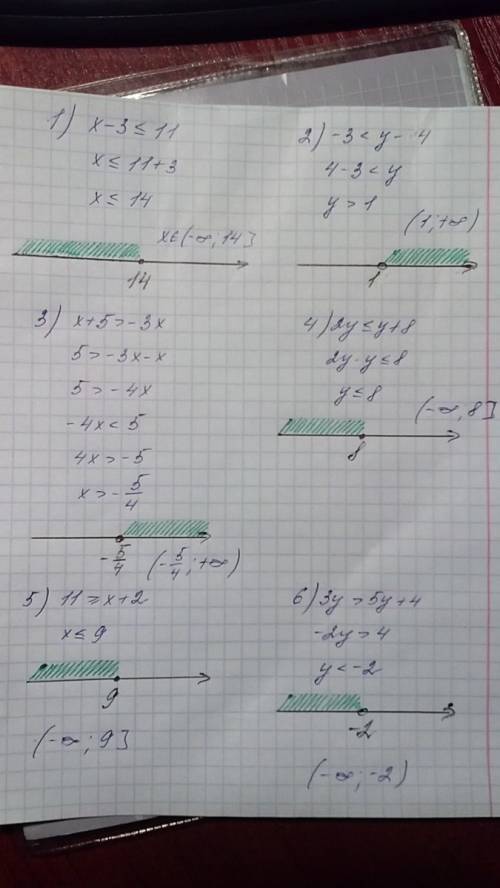 1) x-3≤11
x≤11+3
x≤14
x∈(-∞;14]
14
2) -3<y-4
4-3<y
y>1
(1;+∞)
1
3) x+5>-3x
5>-3x-x
5>-4x
-4x<5
4x>-5
x>-5/4
-5/4 (-5/4;+∞)
4) 2y≤y+8
2y-y≤8
y≤8
(-∞;8]
8
5) 11≥x+2
x≤9
9
(-∞;9]
6) 3y>5y+4
-2y>4
y<-2
-2
(-∞;-2)